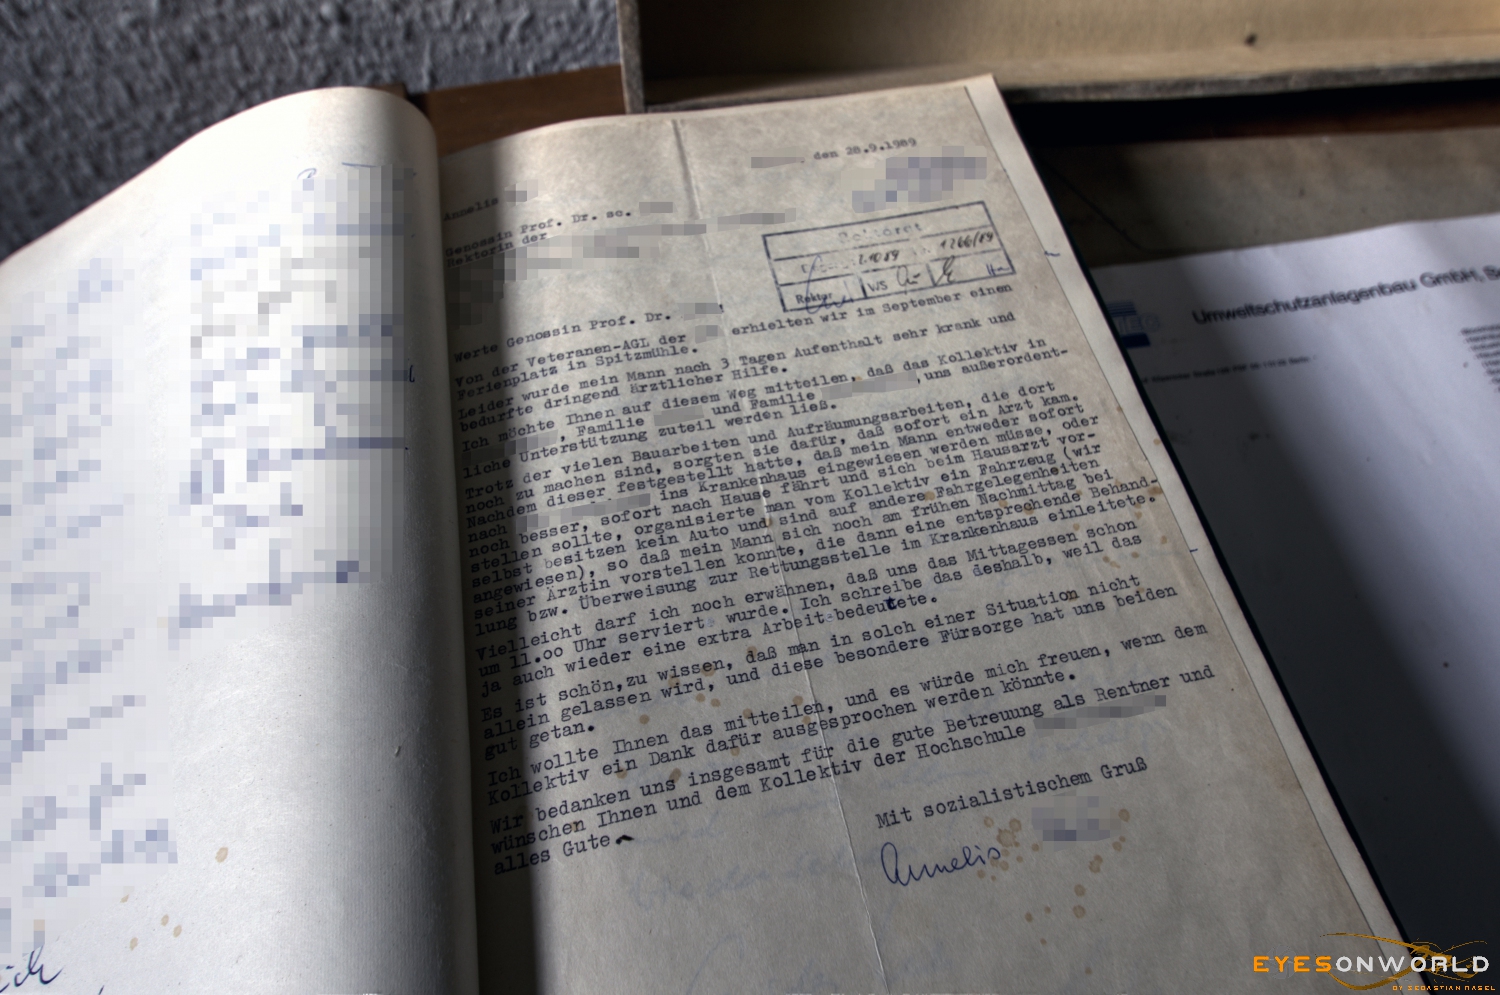 den 28.9.1989
Annelis
Genossin Prof. Dr. sc.
Rektorin der
1266/89
Rektor WS
Werte Genossin Prof. Dr.
Von der Veteranen-AGL der erhielten wir im September einen
Ferienplatz in Spitzmühle.
Leider wurde mein Mann nach 3 Tagen Aufenthalt sehr krank und
bedurfte dringend ärztlicher Hilfe.
Ich möchte Ihnen auf diesem Weg mitteilen, daß das Kollektiv in
, Familie und Familie ,uns außerordent-
liche Unterstützung zuteil werden ließ.
Trotz der vielen Bauarbeiten und Aufräumungsarbeiten, die dort
noch zu machen sind, sorgten sie dafür, daß sofort ein Arzt kam.
Nachdem dieser festgestellt hatte, daß mein Mann entweder sofort
nach ins Krankenhaus eingewiesen werden müsse, oder
noch besser, sofort nach Hause fährt und sich beim Hausarzt vor-
stellen sollte, organisierte man vom Kollektiv ein Fahrzeug (wir
selbst besitzen kein Auto und sind auf andere Fahrgelegenheiten
angewiesen), so daß mein Mann sich noch am frühen Nachmittag bei
seiner Ärztin vorstellen konnte, die dann eine entsprechende Behand-
lung bzw. Überweisung zur Rettungsstelle im Krankenhaus einleitete.
Vielleicht darf ich noch erwähnen, daß uns das Mittagessen schon
um 11.00 Uhr serviert wurde. Ich schreibe das deshalb, weil das
ja auch wieder eine extra Arbeit bedeutete.
Es ist schön,zu wissen, daß man in solch einer Situation nicht
allein gelassen wird, und diese besondere Fürsorge hat uns beiden
gut getan.
Ich wollte Ihnen das mitteilen, und es würde mich freuen, wenn dem
Kollektiv ein Dank dafür ausgesprochen werden könnte.
Wir bedanken uns insgesamt für die gute Betreuung als Rentner und
wünschen Ihnen und dem Kollektiv der Hochschule
alles Gute.
Mit sozialistischem Gruß
Annelis
Umweltschutzanlagenbau GmbH,
EYESONWORLD
BY SEBASTIAN NASEL